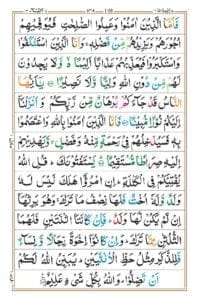 فَاَمَّا الَّذِيْنَ اٰمَنُوْا وَعَمِلُوا الصّٰلِحٰتِ فَيُوَفِّيْهِمْ
اُجُوْرَهُمْ وَيَزِيْدُهُمْ مِّنْ فَضْلِهٖ ۚ وَاَمَّا الَّذِيْنَ اسْتَنْكَفُوْا
وَاسْتَكْبَرُوْا فَيُعَذِّبُهُمْ عَذَابًا اَلِيْمًا ۙ وَّلَا يَجِدُوْنَ
لَهُمْ مِّنْ دُوْنِ اللّٰهِ وَلِيًّا وَّلَا نَصِيْرًا ۝ يٰٓاَيُّهَا
النَّاسُ قَدْ جَآءَكُمْ بُرْهَانٌ مِّنْ رَّبِّكُمْ وَاَنْزَلْنَآ
اِلَيْكُمْ نُوْرًا مُّبِيْنًا ۝ فَاَمَّا الَّذِيْنَ اٰمَنُوْا بِاللّٰهِ وَاعْتَصَمُوْا
بِهٖ فَسَيُدْخِلُهُمْ فِيْ رَحْمَةٍ مِّنْهُ وَفَضْلٍ ۙ وَّيَهْدِيْهِمْ
اِلَيْهِ صِرَاطًا مُّسْتَقِيْمًا ۝ يَسْتَفْتُوْنَكَ ؕ قُلِ اللّٰهُ
يُفْتِيْكُمْ فِي الْكَلٰلَةِ ؕ اِنِ امْرُؤٌا هَلَكَ لَيْسَ لَهٗ
وَلَدٌ وَّلَهٗٓ اُخْتٌ فَلَهَا نِصْفُ مَا تَرَكَ ۚ وَهُوَ يَرِثُهَآ
اِنْ لَّمْ يَكُنْ لَّهَا وَلَدٌ ؕ فَاِنْ كَانَتَا اثْنَتَيْنِ فَلَهُمَا
الثُّلُثٰنِ مِمَّا تَرَكَ ؕ وَاِنْ كَانُوْٓا اِخْوَةً رِّجَالًا وَّنِسَآءً
فَلِلذَّكَرِ مِثْلُ حَظِّ الْاُنْثَيَيْنِ ؕ يُبَيِّنُ اللّٰهُ لَكُمْ
اَنْ تَضِلُّوْا ؕ وَاللّٰهُ بِكُلِّ شَيْءٍ عَلِيْمٌ ۝